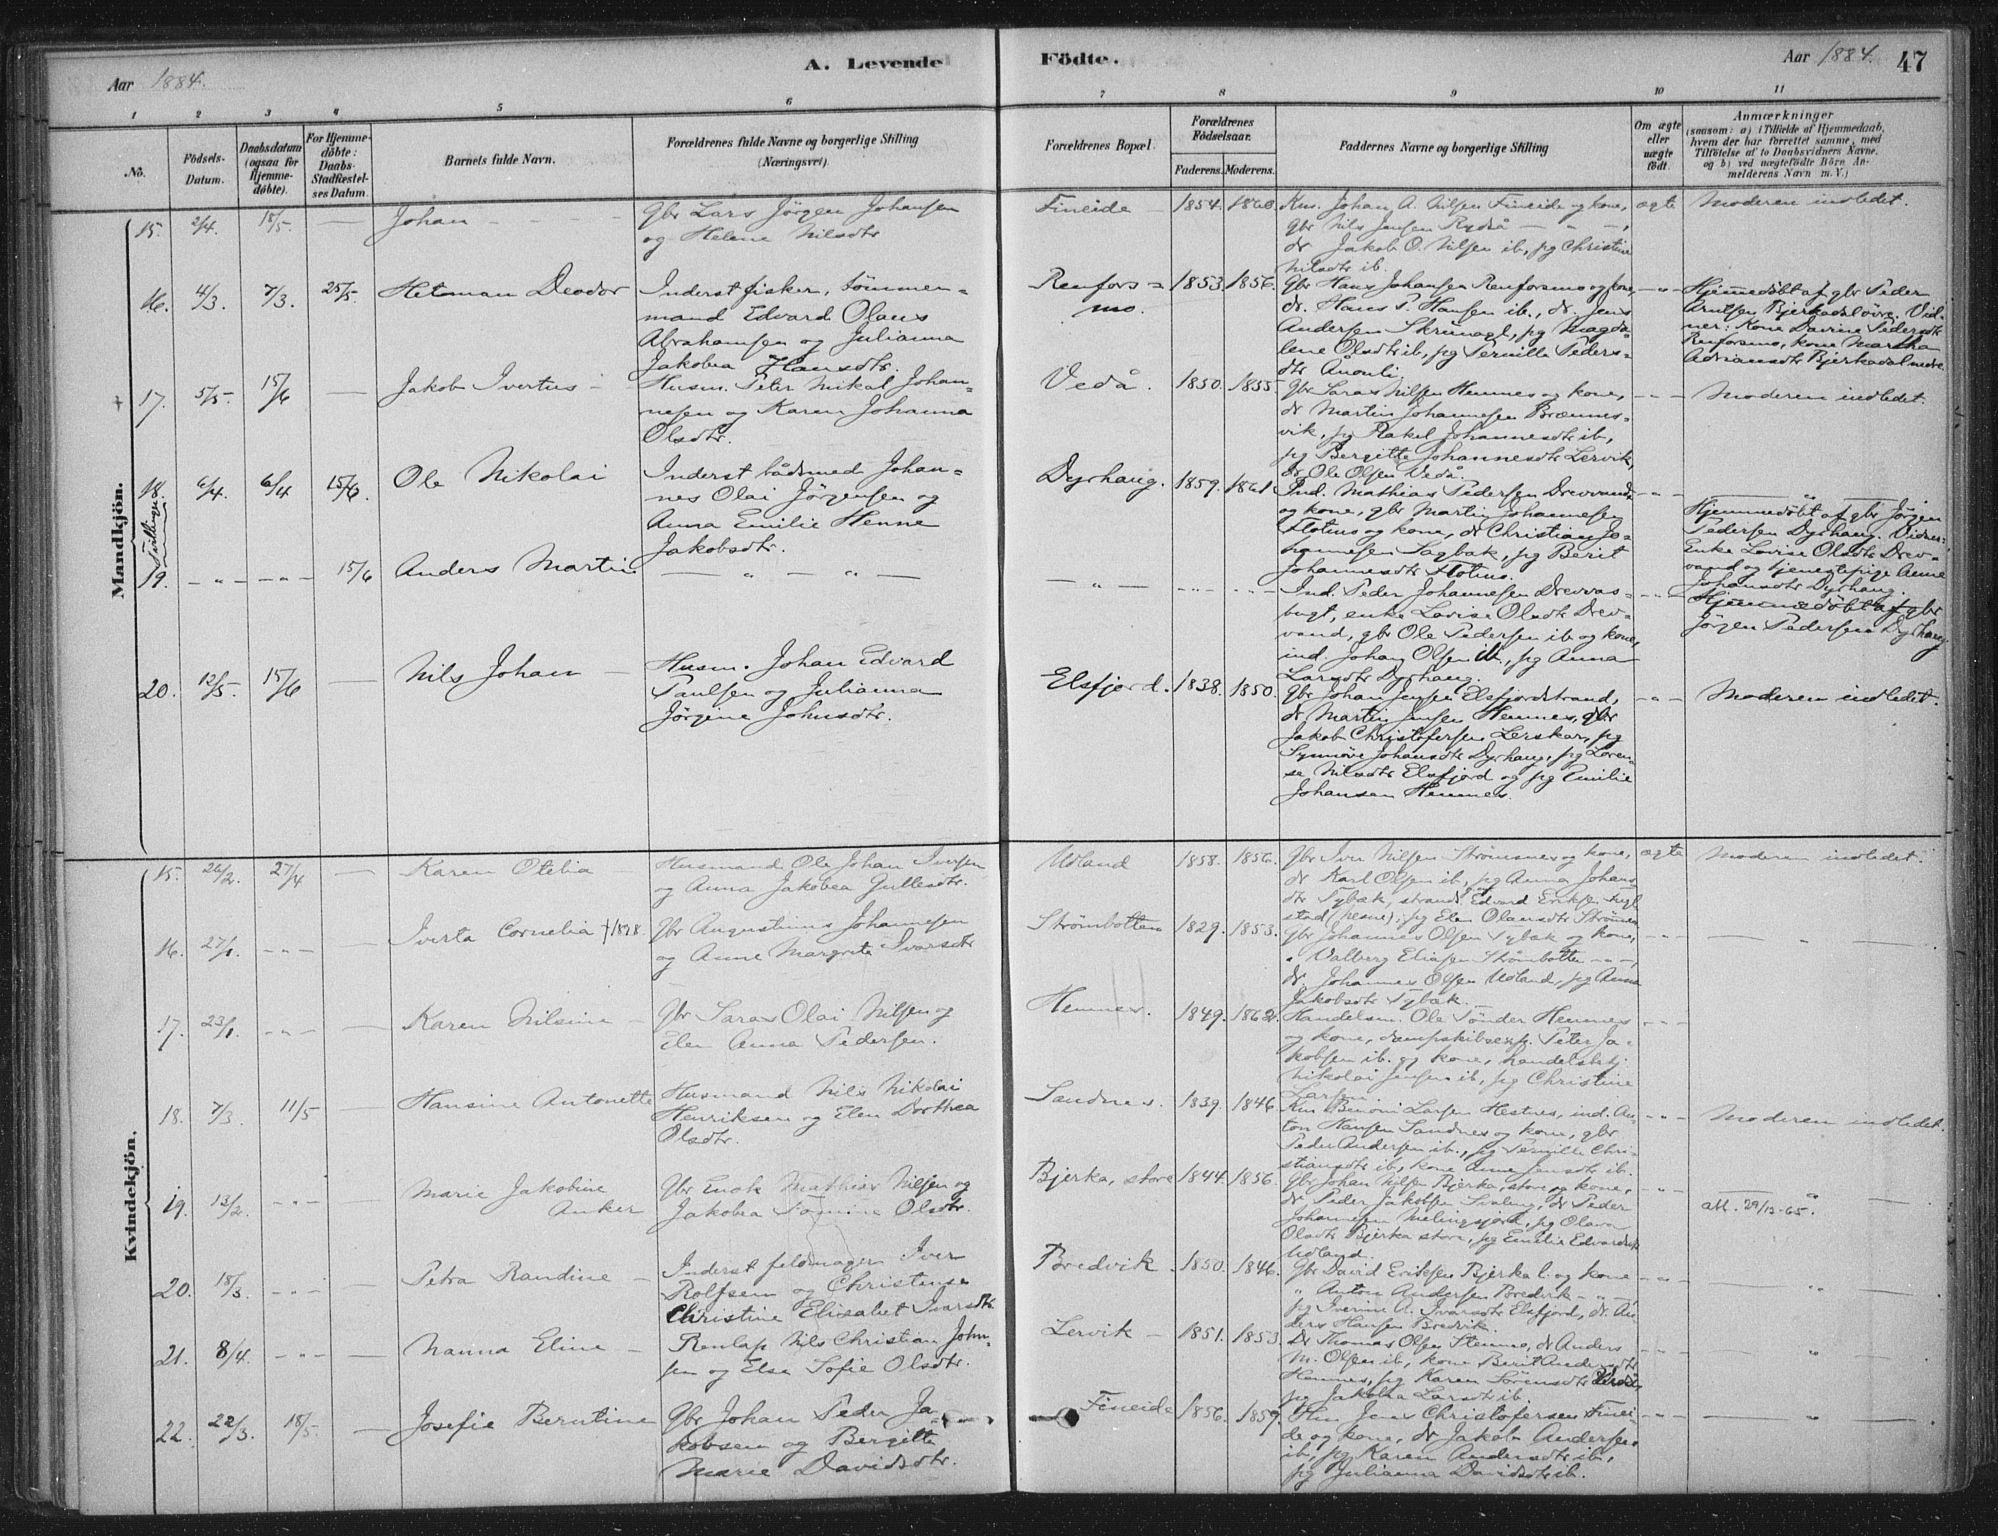 Aar 1884.
A. Levende Födte.
Aar 1884. 47
1 2 3 4 5 6 7 8 9 10 11
No.
Födsels-
Datum.
Daabsdatum
(ogsaa for
Hjemme-
döbte).
For Hjemme-
döbte:
Daabs-
Stadfæstel-
ses Datum.
Barnets fulde Navn.
Forældrenes fulde Navne og borgerlige Stilling
(Næringsvei).
Forældrenes Bopæl.
Forældrenes
Födselsaar.
Faderens. Moderens.
Faddernes Navne og borgerlige Stilling
Om ægte
eller
uægte
födt.
Anmærkninger
(saasom: a) i Tilfælde af Hjemmedaab,
hvem der har forrettet samme, med
Tilföielse af to Daabsvidners Navne,
og b) ved uægtefödte Börn An-
melderens Navn m. V.)
Mandkjön.
15. 2/4. 18/5- — Johan -
Gbr Lars Jörgen Johansen
og Helene Nilsdtr
Fineide - 1854. 1860.
Km. Johan A. Nilsen Fineide og kone,
gbr Nils Jensen Rydså — " —,
dr Jakob O. Nilsen ib, pg Christine
Nilsdtr ib.
ægte Moderen indledet.
16. 4/3. 7/3. 25/5. Herman Deodor
Inderst fisker, tömmer=
mand Edvard Olaus
Abrahamsen og Julianna
Jakobea Hansdtr.
Renfors=
mo. 1853. 1856.
Gbr Hans Johansen Renforsmo og kone,
dr. Hans P. Hansen ib., dr. Jens
Andersen Skrimagl, pg Magda-
lene Olsdtr ib, pg Pernille Peders-
dtr Anonli.
-"-
Hjemmedöbt af gbr Peder
Arntsen Bjerkadal övre. Vid-
ner: Kone Davine Pedersdtr
Renforsmo, kone Martha
Adriansdtr Bjerkadal nedre.
17. 5/5. 15/6 — Jakob Ivertus -
Husm. Peter Mikal Johan-
nesen og Karen Johanna
Olsdtr.
Vedå. 1850. 1855.
Gbr Lars Nilsen Hemnes og kone,
dr Martin Johannesen Brennes-
vik, pg Rakel Johannesdtr ib,
pg Bergitte Johannesdtr Lervik,
dr Ole Olsen Vedå.
-"- Moderen indledet.
18. 6/4. 6/4 15/6. Ole Nikolai
Tvillinger
Inderst bådsmed Johan=
nes Olai Jörgensen og
Anna Emilie Henne
Jakobsdtr.
Dyrhaug. 1859. 1861.
Ind. Mathias Pedersen Drevvand
og kone, gbr Martin Johannesen
Flotnes og kone, dr Christian Jo-
hannesen Sagbak, pg Berit
Johannesdtr Flotnes.
-"- — " —
Hjemmedöbt af gbr Jörgen
Pedersen Dyrhaug. Vidner:
Enke Lovise Olsdtr Drev-
vand og tjenestepige Anne
Johansdtr Dyrhaug.
19. -"- -"- 15/6 Anders Martin
— " — " —
— " — -"- -"-
Ind. Peder Johannesen Drevvas-
bugt, enke Lovise Olsdtr Drev-
vand, gbr Ole Pedersen ib og kone,
ind. Johan Olsen ib, pg Anna
Larsdtr Dyrhaug.
-"-
Hjemmedöbt af gbr
Jörgen Pedersen Dyrhaug
20. 12/5. 15/6 — Nils Johan —
Husm. Johan Edvard
Paulsen og Julianna
Jörgine Johnsdtr.
Elsfjord. 1838. 1850.
Gbr Johan Jensen Elsfjordstrand,
dr. Martin Jensen Hemnes, gbr
Jakob Christofersen Lerskar, pg
Synnöve Johansdtr Dyrhaug, pg Loren-
se Nilsdtr Elsfjord og pg Emilie
Johansen Hemnes.
-"- Moderen indledet.
Kvindekjön.
15. 26/2. 27/4 — Karen Otelia —
Husmand Ole Johan Iversen
og Anna Jakobea Gullesdtr.
Utland 1858. 1856.
Gbr Iver Nilsen Strömsnes og kone,
dr Karl Olsen ib, pg Anna Johans
dtr Tybæk, strands. Edvard Eriksen Fugl-
stad (Nesne), pg Elen Olausdtr Strömsn
ægte Moderen indledet.
16. 27/1. -"- — Iverta Cornelia
Gbr Augustinus Johannesen
og Anne Margrete Ivarsdtr
Strömbotten 1829. 1853.
Gbr Johannes Olsen Tybæk og kone,
" Dalberg Eliasen Strömbotten -"-,
dr. Johannes Olsen Utland, pg Anna
Jakobsdtr Tybæk.
-"- — " —
17. 23/1. -"- — Karen Nilsine —
Gbr Lars Olai Nilsen og
Elen Anna Pedersen.
Hemnes. 1849. 1862.
Handelsm. Ole Tönder Hemnes
og kone, dampskibsexp. Peter Ja-
kobsen ib. og kone, handelsbtj.
Nikolai Jensen ib, pg Christine
Larsen.
-"-
18. 7/3. 11/5 — Hansine Antonette
Husmand Nils Nikolai
Henriksen og Elen Dorthea
Olsdtr.
Sandnes. 1839. 1846.
Km Benoni Larsen Hestnes, ind. An-
ton Hansen Sandnes og kone, gbr
Peder Andersen ib., pg Pernille Chri-
stiansdtr ib, kone Anne Jensdtr ib.
-"- Moderen indledet.
19. 13/2. -"- — Marie Jakobine
Anker
Gbr Enok Mathias Nilsen og
Jakobea Tomine Olsdtr.
Bjerka, store 1844. 1856.
Gbr Johan Nilsen Bjerka, store og kone,
dr Peder Jakobsen Svaling, dr Peder
Johannesen Melingsjord, pg Olava
Olsdtr Bjerka store, pg Emelie Edvardsdtr
Utland.
-"- — " —
att. 29/12-65.
20. 18/3. -"- — Petra Randine —
Inderst feldmager Iver
Rolfsen og Christense
Christine Elisabet Ivarsdtr.
Bredvik. 1850. 1846.
Gbr David Eriksen Bjerka l. og kone
" Anton Andersen Bredvik -"-,
pg Iverine A. Ivarsdtr Elsfjord, dr. An-
ders Hansen Bredvik.
-"- — " —
21. 8/4. -"- — Nanna Eline —
Renlap Nils Christian John-
sen og Else Sofie Olsdtr.
Lervik — 1851. 1853.
Dr Thomas Olsen Stennes, dr Anders
M. Olsen ib, kone Berit Andersdtr
Hemnes, pg Karen Sörensdtr
pg Jakobea Larsdtr ib.
-"- — " —
22. 22/3. 18/5- — Josefie Berntine
Gbr Johan Peder Ja-
kobsen og Bergitte
Marie Davidsdtr.
Fineide 1856. 1859.
Hm Jens Christofersen Finei-
de og kone, dr Jakob Andersen
ib, pg Karen Andersdtr ib,
pg Julianna Davidsdtr ib.
-"- — " —